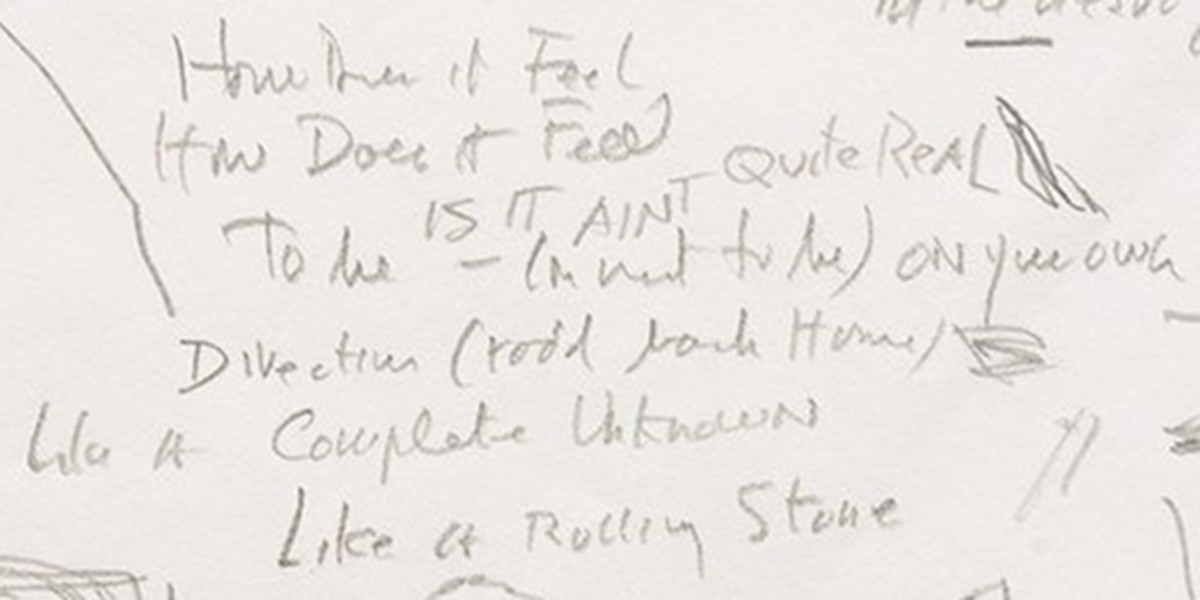 How Does it Feel
How Does it Feel
Quite Real
IS IT AINT
To be – (to be) ON your own
Direction (road back Home)
Like a Complete Unknown
Like a Rolling Stone